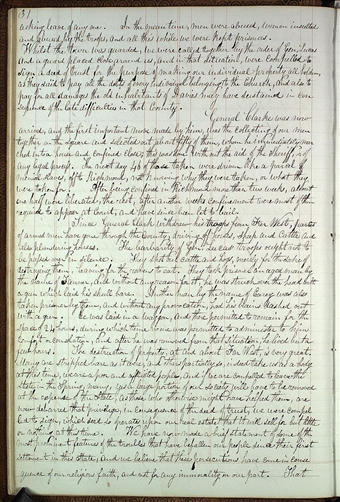 asking leave of any one. In the mean time, men were abused, women insulted
and abused by the troops, and all this while we were kept prisoners.
Whilst the Town was guarded, we were called together by the order of Gen. Lucas
and a guard placed close around us, and in that situation, were compelled to
sign a deed of trust for the purpose of making our individual property, all holden,
as they said to pay all the debts of every individual belonging to the church, and also to
pay for all damages the old inhabitants of Davies may have sustained in con-
sequence of the late difficulties in that County.
General Clark was now
arrived, and the first important move made by him, was the collecting of our men
together on the square and selected out about fifty of them, whom he immediately mar-
ched into a house and confined close; this was done without the aid of the sheriff, or
any legal process. The next day 46 of those taken were driven like a parcel of
menial slaves, off to Richmond, not knowing why they were taken, or what they
were taken for. After being confined in Richmond more than two weeks, about
one half were liberated; the rest, after another weeks confinement were most of them
required to appear at court, and have since been let to bail.
Since General Clark withdrew his troops from Far West, parties
of armed men have gone through the County, driving off horses, sheep and cattle and
also plundering houses. The barbarity of General Lucas' troops ought not to
be passed over in silence. They shot our cattle and hogs, merely for the sake of
destroying them, leaving for the ravens to eat. They took prisoner an aged man by
the name of Tanner, and without any reason for it, he was struck over the head with
a gun which laid his skull bare. Another man by the name of Carey was also
taken prisoner by them, and without any provocation, had his brains dashed out
with a gun. He was laid in a waggon, and there permitted to remain for the
space of 24 hours, during which time no one was permitted to administer to him
comfort or consolation, and after he was removed from that situation, he lived but a
few hours. The destruction of property, at and about Far West, is very great;
Many are stripped bare as it were, and others partially so, indeed take us as a body
at this time, we are a poor and afflicted people, and if we are compelled to leave the
state in the spring, many, yes a large portion of our society will have to be removed
at the expense of the State, as those who otherwise might have helped them, are
now debarred that privilege, in consequence of the deed of trust, we were compel-
led to sign, which deed so operates upon our real estate that it will sell for but little
or nothing at this time. We have now made a brief statement of some of the
most prominent features of the troubles that have befallen our people since their first
settlement in this state, and we believe that these persecutions have come in conse-
quence of our religious faith, and not for any immorality on our part. That